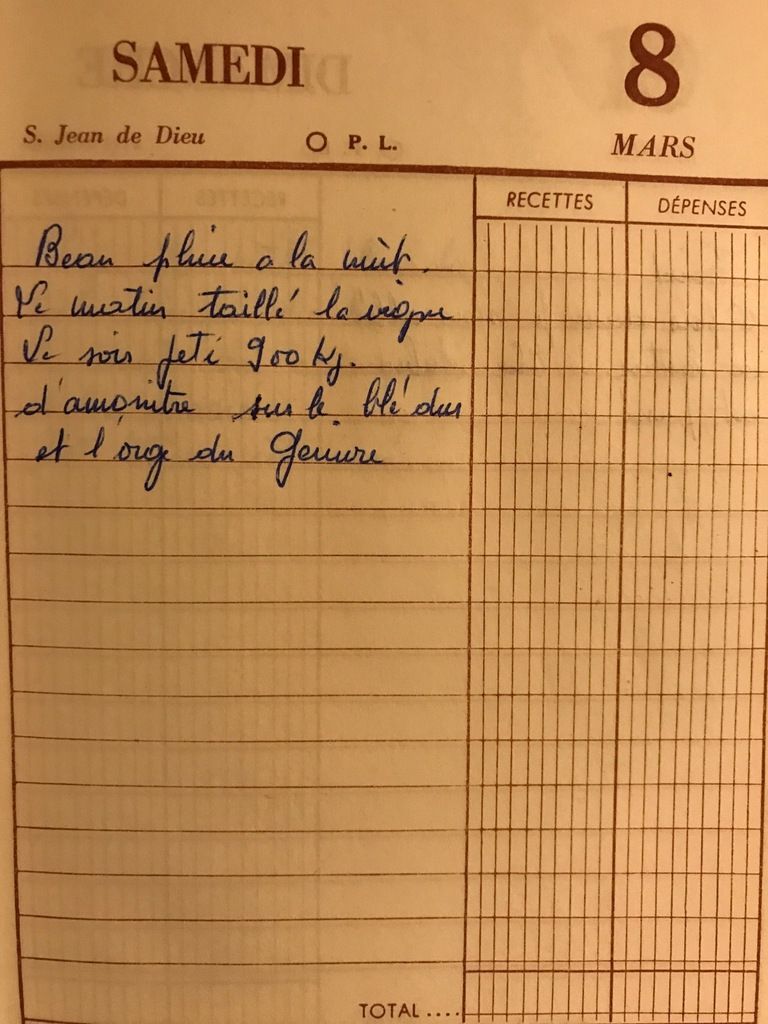 SAMEDI 8
S. Jean de Dieu O P. L. MARS
RECETTES DÉPENSES
Beau pluie a la nuit.
Le matin taillé la vigne
Le soir jeté 900 kg.
d'amonitre sur le blé dur
et l'orge du
TOTAL ....